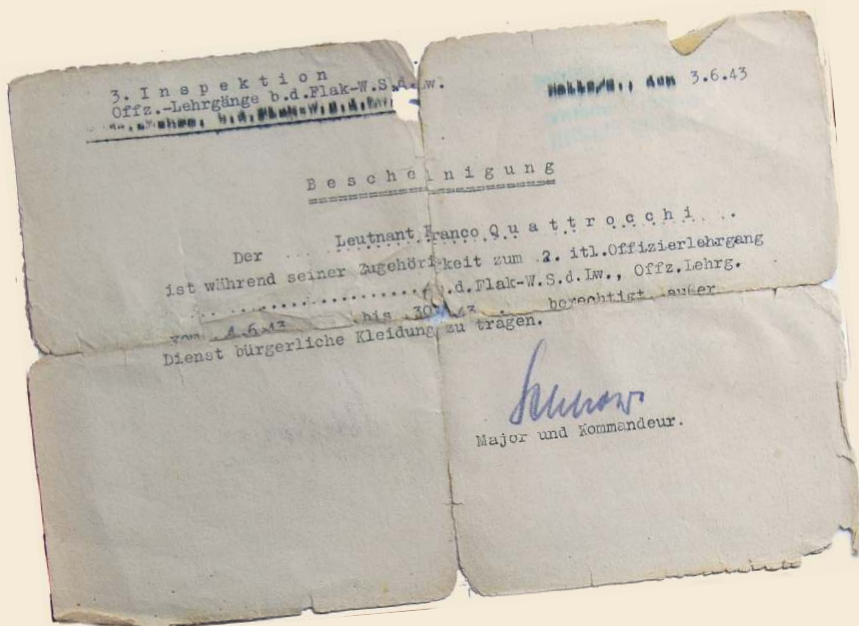 3. Inspektion
Offz.-Lehrgänge b.d.Flak-W.S.d.Lw.
den 3.6.43
Bescheinigung
Der ... Leutnant Franco Quattrocchi ...
ist während seiner Zugehörigkeit zum 2. itl.Offizierlehrgang
b.d.Flak-W.S.d.Lw., Offz.Lehrg.
vom bis berechtigt, außer
Dienst bürgerliche Kleidung zu tragen.
Major und Kommandeur.